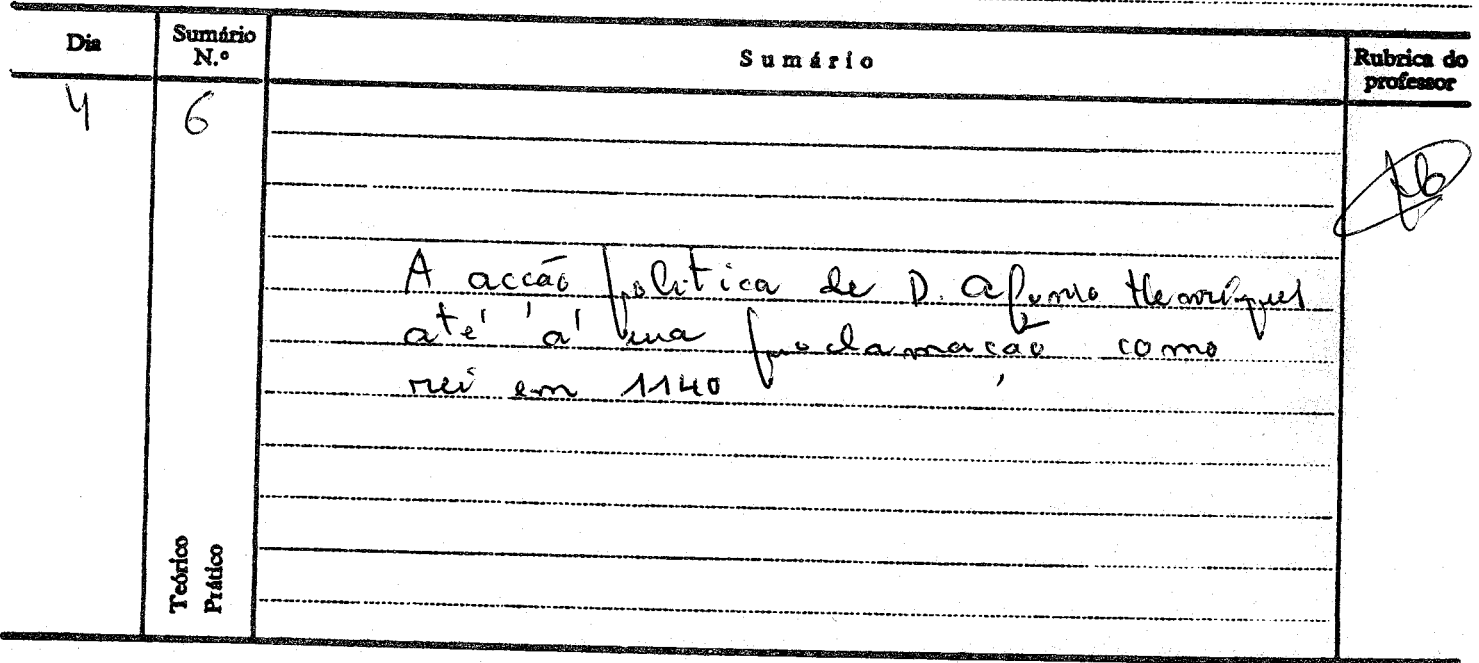 Dia
Sumário N.º
Sumário
Rubrica do professor
4
6
A acção política de D. Afonso Henriques
até à sua proclamação como
rei em 1140
Teórico
Prático